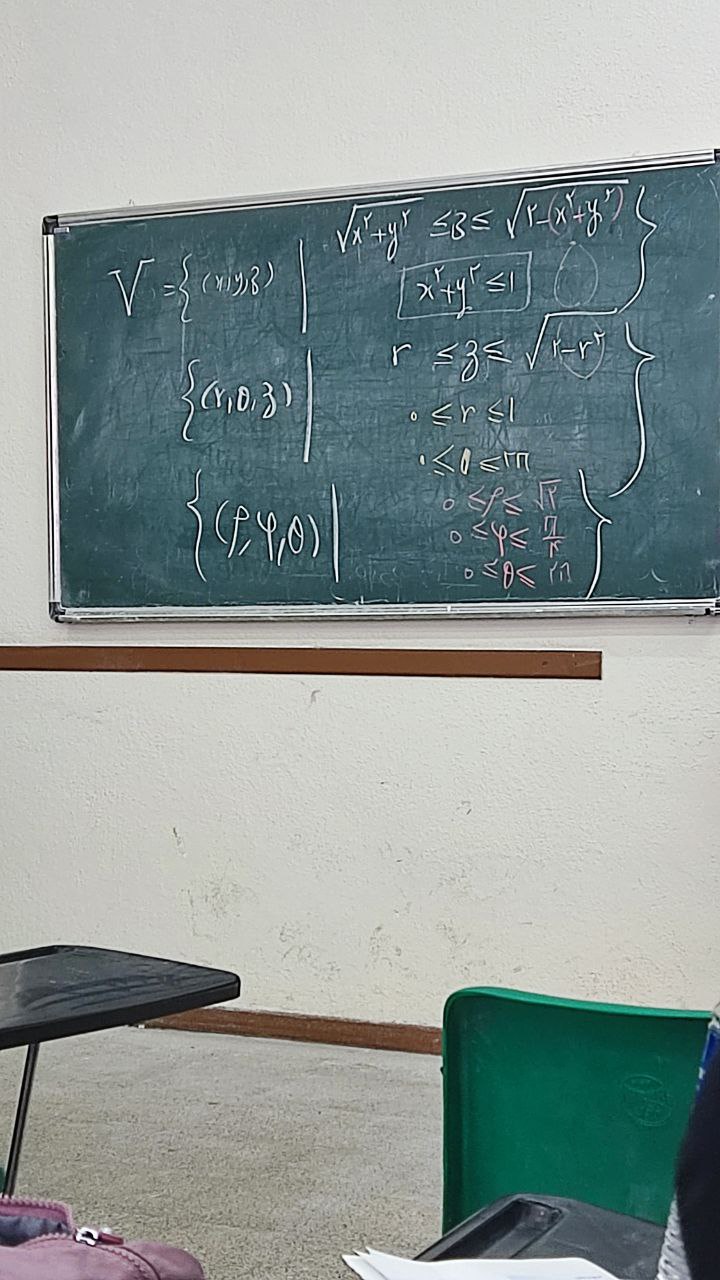 V = { (x,y,z) | √x²+y² ≤ z ≤ √۲-(x²+y²) }
x²+y² ≤ 1
{ (r,θ,z) | r ≤ z ≤ √۲-r² }
۰ ≤ r ≤ 1
۰ ≤ θ ≤ ۲π
{ (ρ,φ,θ) | ۰ ≤ ρ ≤ √۲ }
۰ ≤ φ ≤ π/۴
۰ ≤ θ ≤ ۲π